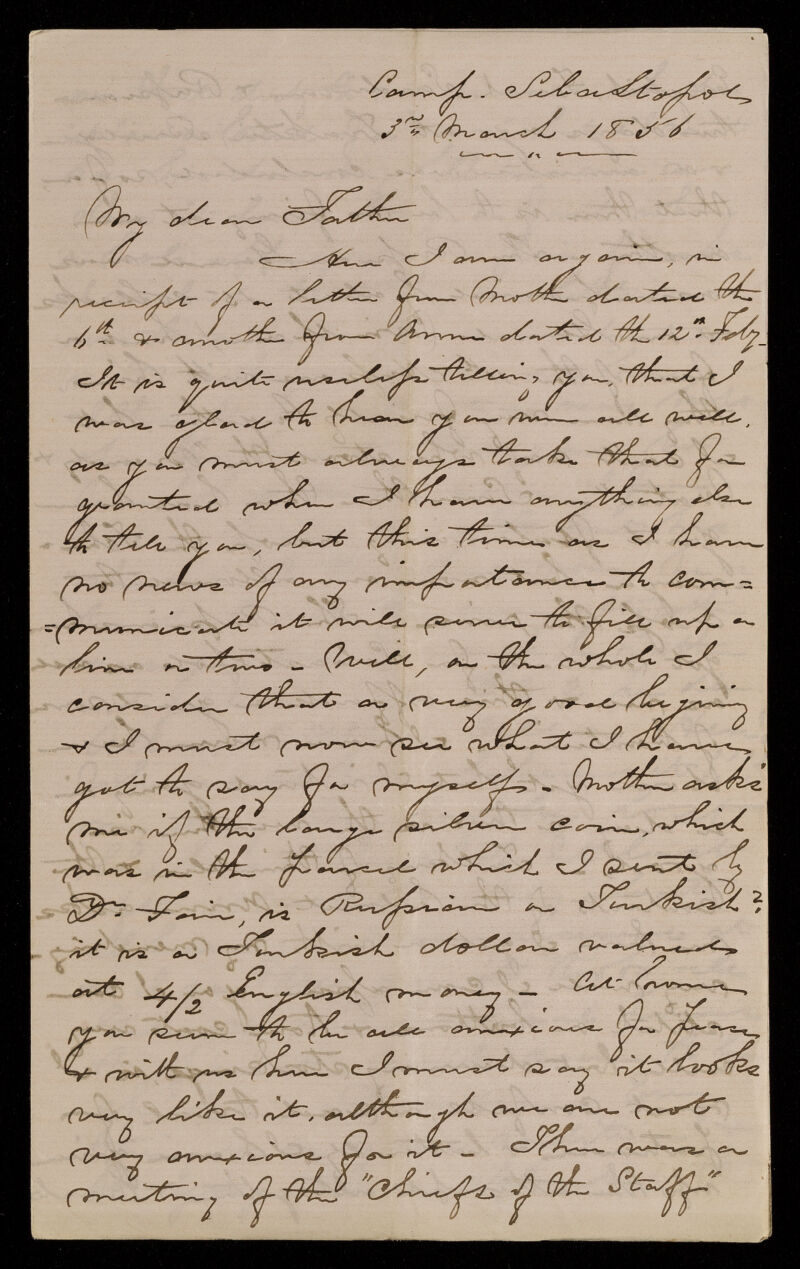 Camp. Sebastopol
3rd March 1856
My dear Father
Here I am again, in
receipt of a letter from Mother dated the
6th & another from Anne dated the 12th Feby.
It is quite useless telling you, that I
was glad to hear you were all well,
as you must always take that for
granted when I have anything else
to tell you, but this time as I have
no news of any importance to com=
=municate it will serve to fill up a
line or two - Well, on the whole I
consider that a very good begining
& I must now see what I have
got to say for myself - Mother asks
me if the large silver coin, which
was in the parcel which I sent by
Dr. , is Russian or Turkish?
it is a Turkish dollar valued
at 4/2 English money - At home
you seem to be all anxious for peace
& with us here I must say it looks
very like it, although we are not
very anxious for it - There was a
meeting of the "Chiefs of the Staff"